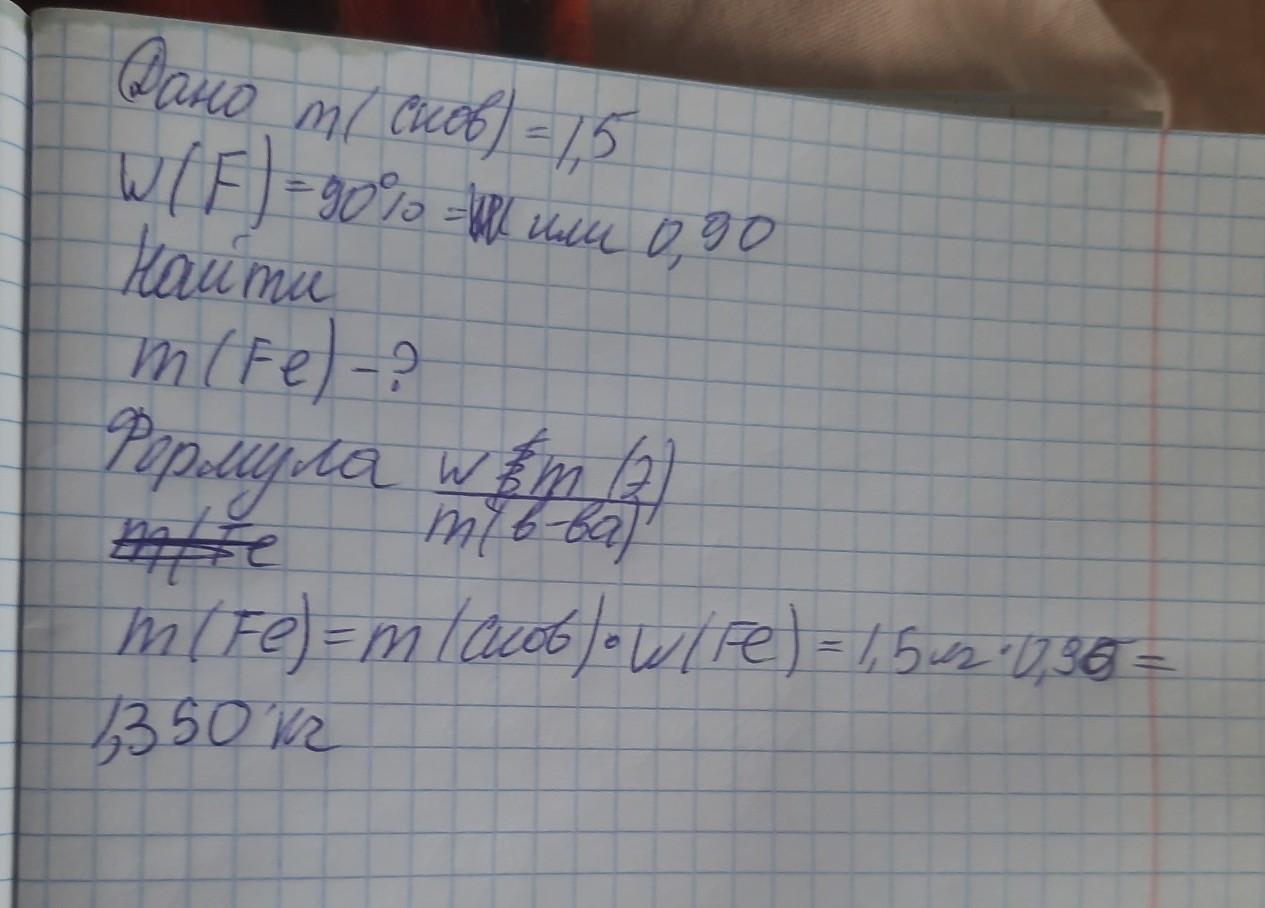 Дано m(сков) = 1,5
W(F) = 90% = или 0,90
Найти
m(Fe) - ?
Формула w m (э)
m(в-ва)
m(Fe
m(Fe) = m(сков) · w(Fe) = 1,5 кг · 0,90 =
1,350 кг